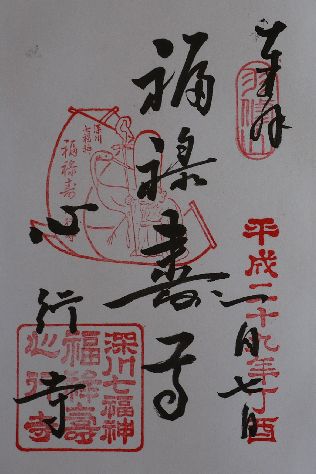 奉拝
平成二十九年丁酉
一月七日
福禄寿尊
深川
七福神
福禄寿
心行寺
深川七福神
福禄壽
心行寺